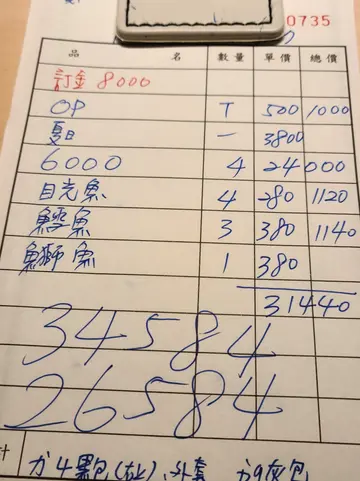 0735
品 名 數量 單價 總價
訂金 8000
OP T 500 1000
夏日 一 3800
6000 4 24000
目光魚 4 280 1120
鱈魚 3 380 1140
鰤魚 1 380
31440
34584
26584
计 か4黑包(右上)、外套 か9灰包